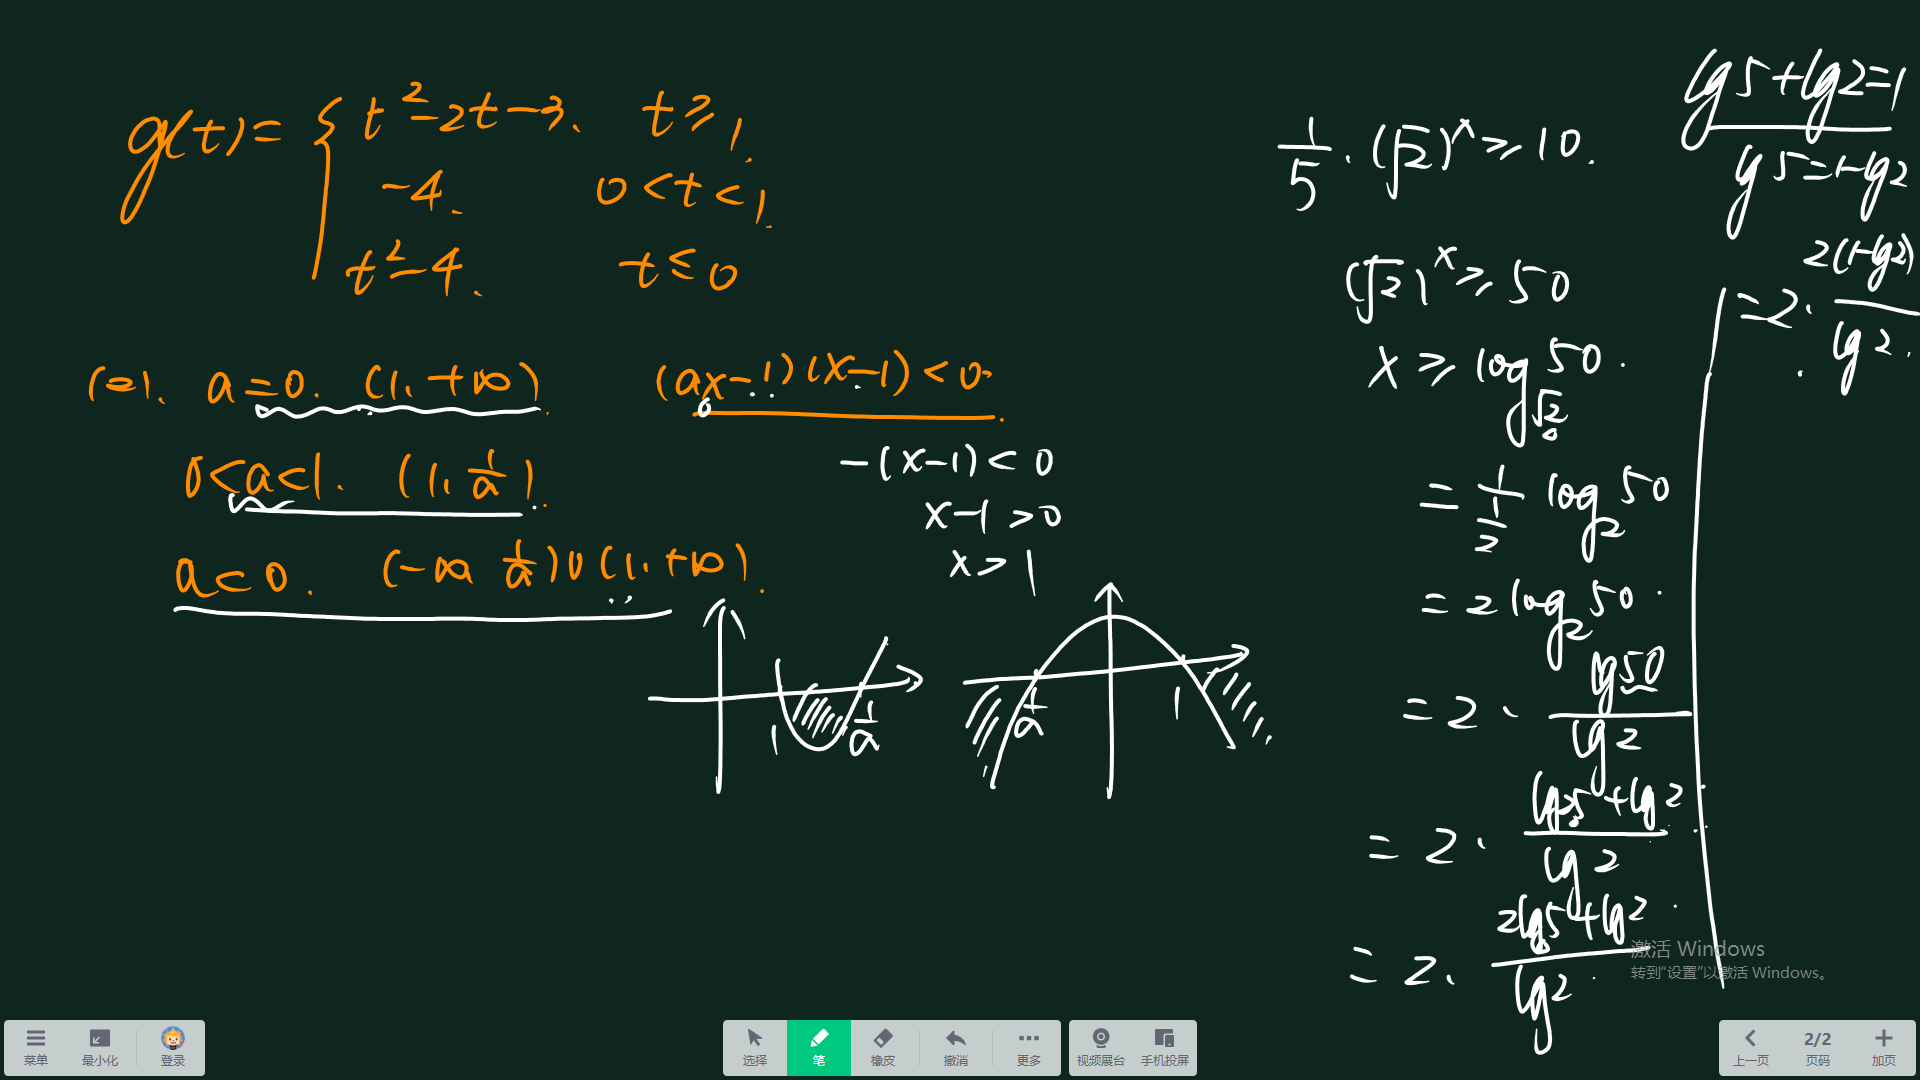 g(t)= { t²-2t-3, t≥1,
-4, 0<t<1,
t²-4, t≤0
(二). a=0. (1,+∞).
0<a<1. (1, 1/a).
a<0. (-∞ 1/a)∪(1,+∞).
(ax-1)(x-1)<0.
0
-(x-1)<0
x-1>0
x>1
1 1/a
1/a 1
1/5·(√2)^x≥10.
(√2)^x≥50
x≥log_√2 50.
= 1/(1/2) log_2 50
=2log_2 50.
=2· lg50/lg2
=2· (lg25+lg2)/lg2
=2· (2lg5+lg2)/lg2
lg5+lg2=1
lg5=1-lg2
=2· 2(1-lg2)/lg2.
激活 Windows
转到“设置”以激活 Windows。
菜单 最小化 登录 选择 笔 橡皮 撤消 更多 视频展台 手机投屏 上一页 2/2 页码 加页